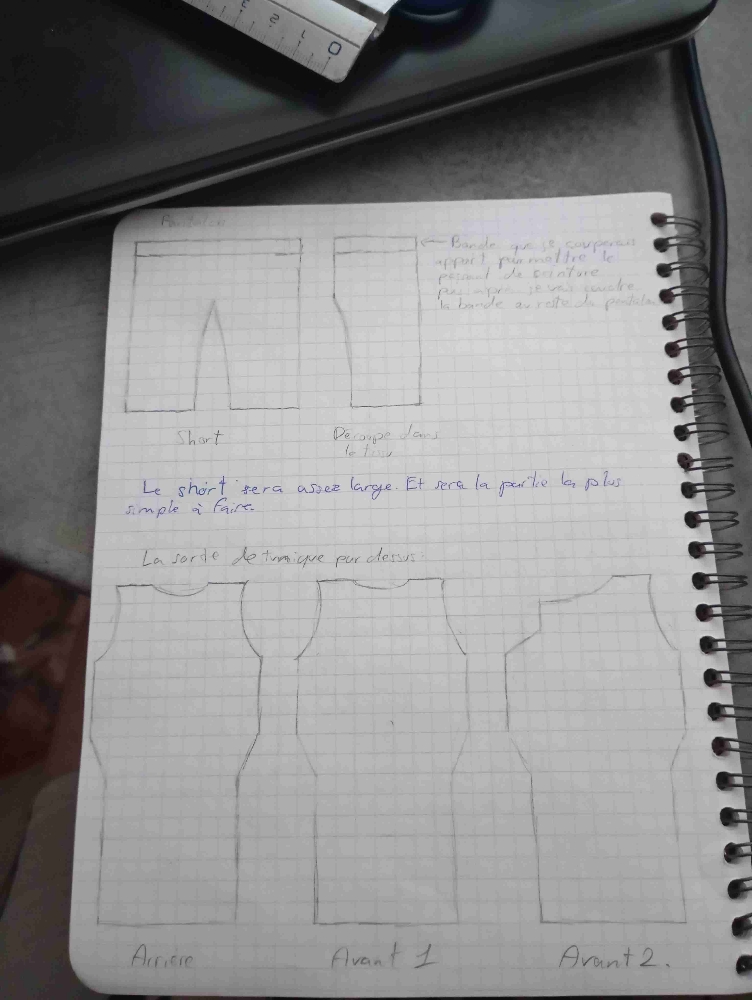 Pantalon
Bande que je couperais
appart pour mettre le
passant de ceinture
puis après je vais coudre
la bande au reste du pantalon
Short
Découpe dans
le tissu
Le short sera assez large. Et sera la partie la plus
simple à faire.
La sorte de tunique par dessus:
Arrière
Avant 1
Avant 2.
0 1 2 3